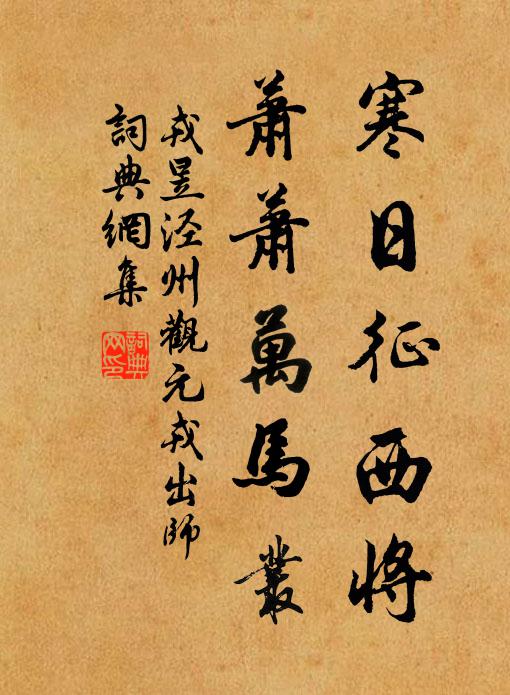 寒日征西將
蕭蕭萬馬叢
戎昱涇州觀元戎出師
詞典網集
詞典網印